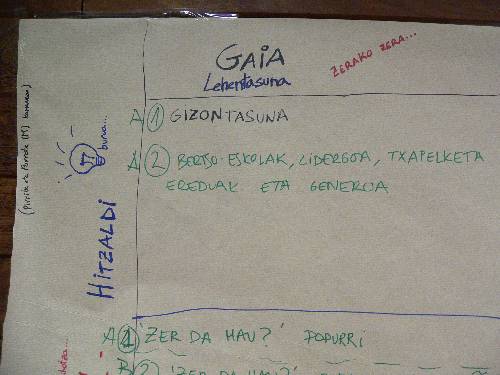 GAIA
Lehentasuna
ZERAKO ZERA...
A 1 GIZONTASUNA
A 2 BERTSO-ESKOLAK, LIDERGOA, TXAPELKETA
EREDUAK ETA GENEROA
buruz...
HITZALDI
A 1 'ZER DA HAU?' POPURRI
B 2 'ZER DA HAU?'